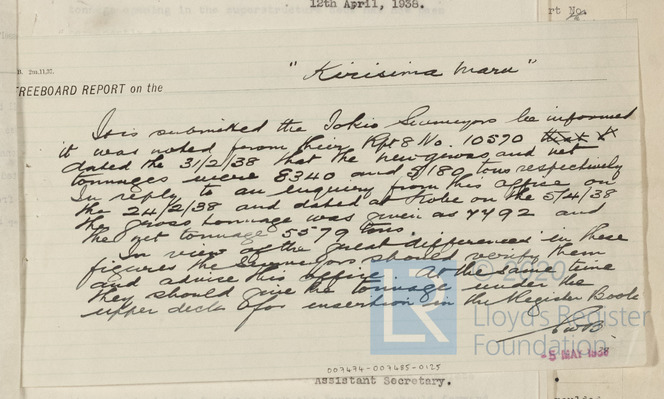 12th April, 1938.
rt No.
B. 2m.11.37.
"Kirisima Maru"
FREEBOARD REPORT on the
It is submitted the Tokio Surveyors be informed
it was noted from their Rpt 8 No. 10570
dated the 31/2/38 that the new gross and net
tonnages were 8340 and 5180 tons respectively
In reply to an enquiry from this office on
the 24/2/38 and dated at Kobe on the 5/4/38
the gross tonnage was given as 7792 and
the net tonnage 5579 tons.
In view of the great differences in these
figures the Surveyors should verify them
and advise this office. At the same time
they should give the tonnage under the
upper deck for insertion in the Register Book
© 2020
LR
Lloyd's Register
Foundation
-5 MAY 1938
007474-007485-0125
Assistant Secretary.